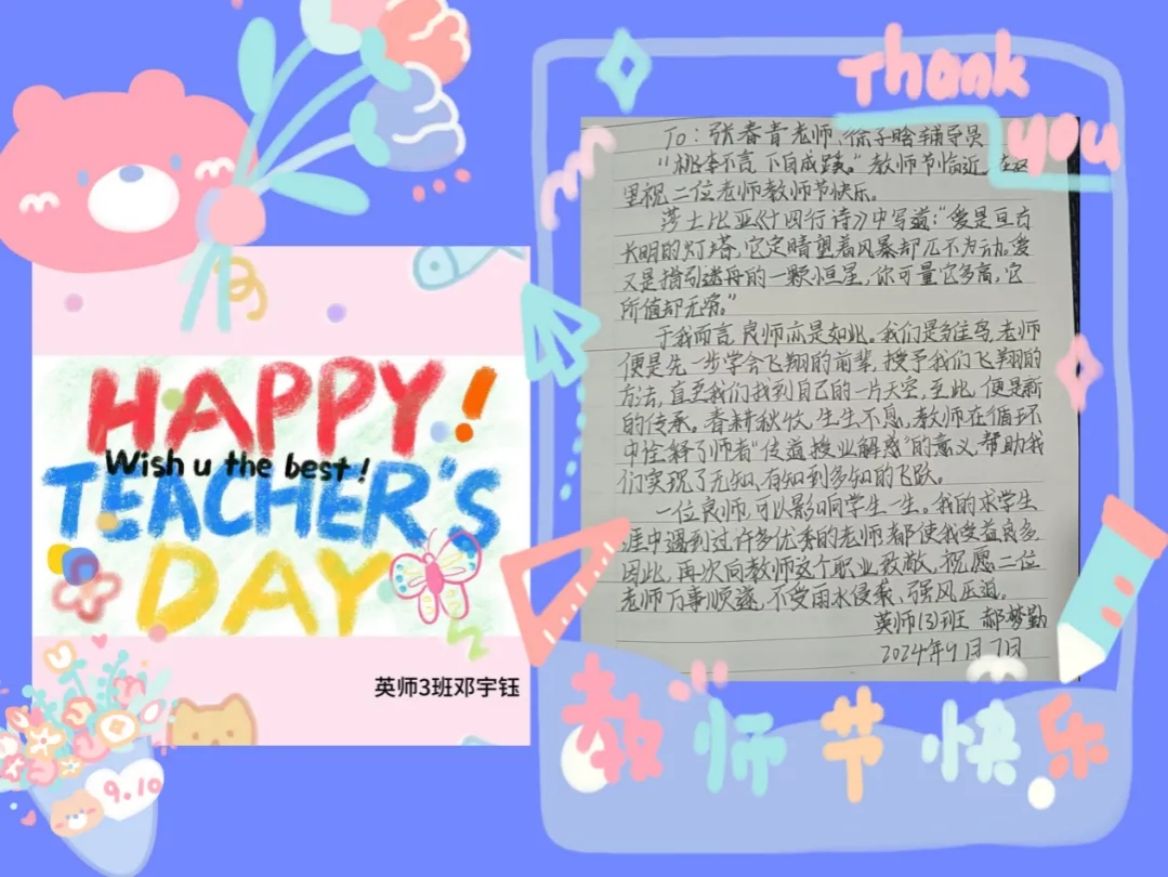 HAPPY!
Wish u the best!
TEACHER'S
DAY
英师3班邓宇钰
9.10
Thank
you
To：张春青老师、徐子晗辅导员
“桃李不言，下自成蹊。”教师节临近，在这
里祝二位老师教师节快乐。
莎士比亚《十四行诗》中写道：“爱是亘古
长明的灯塔，它定睛望着风暴却兀不为动。爱
又是指引迷舟的一颗恒星，你可量它多高，它
所值却无穷。”
于我而言，良师亦是如此。我们是雏鸟，老师
便是先一步学会飞翔的前辈，授予我们飞翔的
方法，直至我们找到自己的一片天空。至此，便是新
的传承。春耕秋收，生生不息，教师在循环
中诠释了师者“传道授业解惑”的意义，帮助我
们实现了无知、有知到多知的飞跃。
一位良师，可以影响学生一生。我的求学生
涯中遇到过许多优秀的老师都使我受益良多，
因此，再次向教师这个职业致敬，祝愿二位
老师万事顺遂，不受雨水侵袭、强风压迫。
英师(3)班 郝梦勤
2024年9月7日
教师节快乐